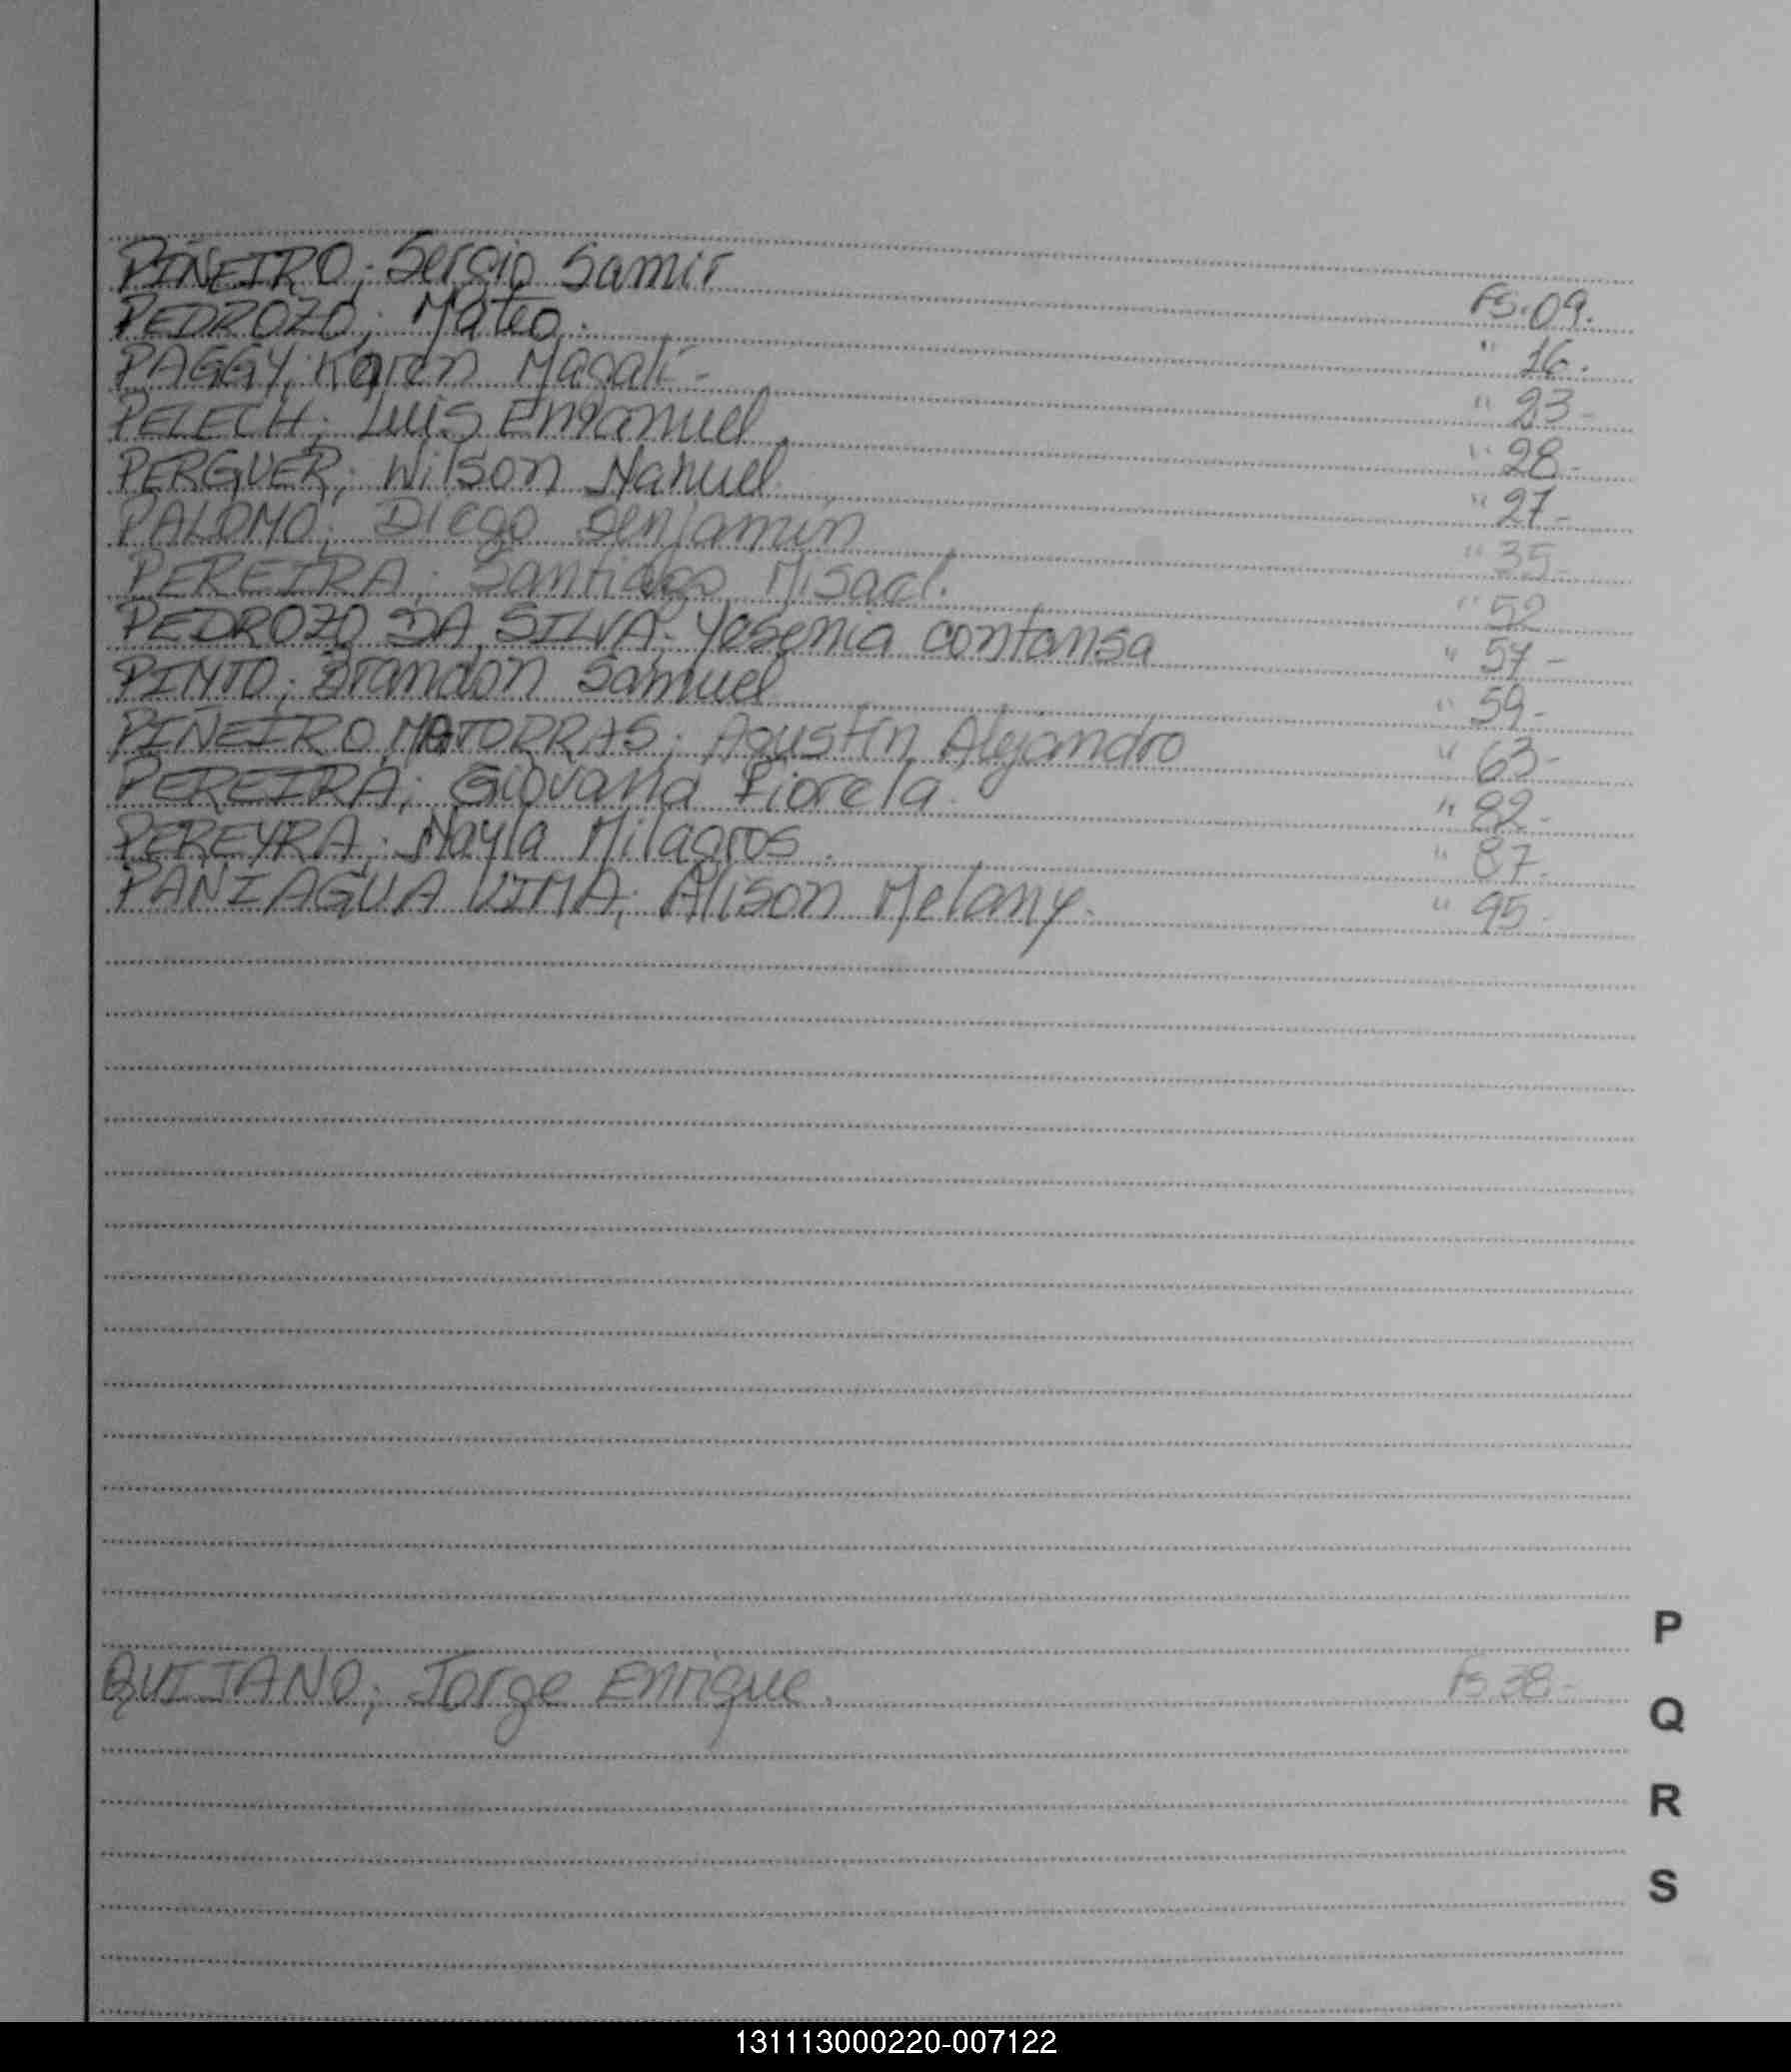 PIÑEIRO; Sergio Samir Fs. 09.
PEDROZO; Mateo. " 16.
PAGGY; Karen Magalí- " 23-
PELECH; Luis Emmanuel. " 28-
PERGUER; Wilson Nahuel. " 27-
PALOMO; Diego Benjamin " 35-
PEREIRA; Santiago Misael. " 52
PEDROZO DA SILVA; Yesenia contansa " 57-
PINTO; Brandon Samuel " 59-
PIÑEIRO MATORRAS; Agustín Alejandro " 63-
PEREIRA; Giovana Fiorela. " 82-
PEREYRA; Nayla Milagros. " 87-
PANIAGUA LIMA; Alison Melany. " 95-
P
QUIJANO; Jorge Enrique. Fs 38-
Q
R
S
131113000220-007122